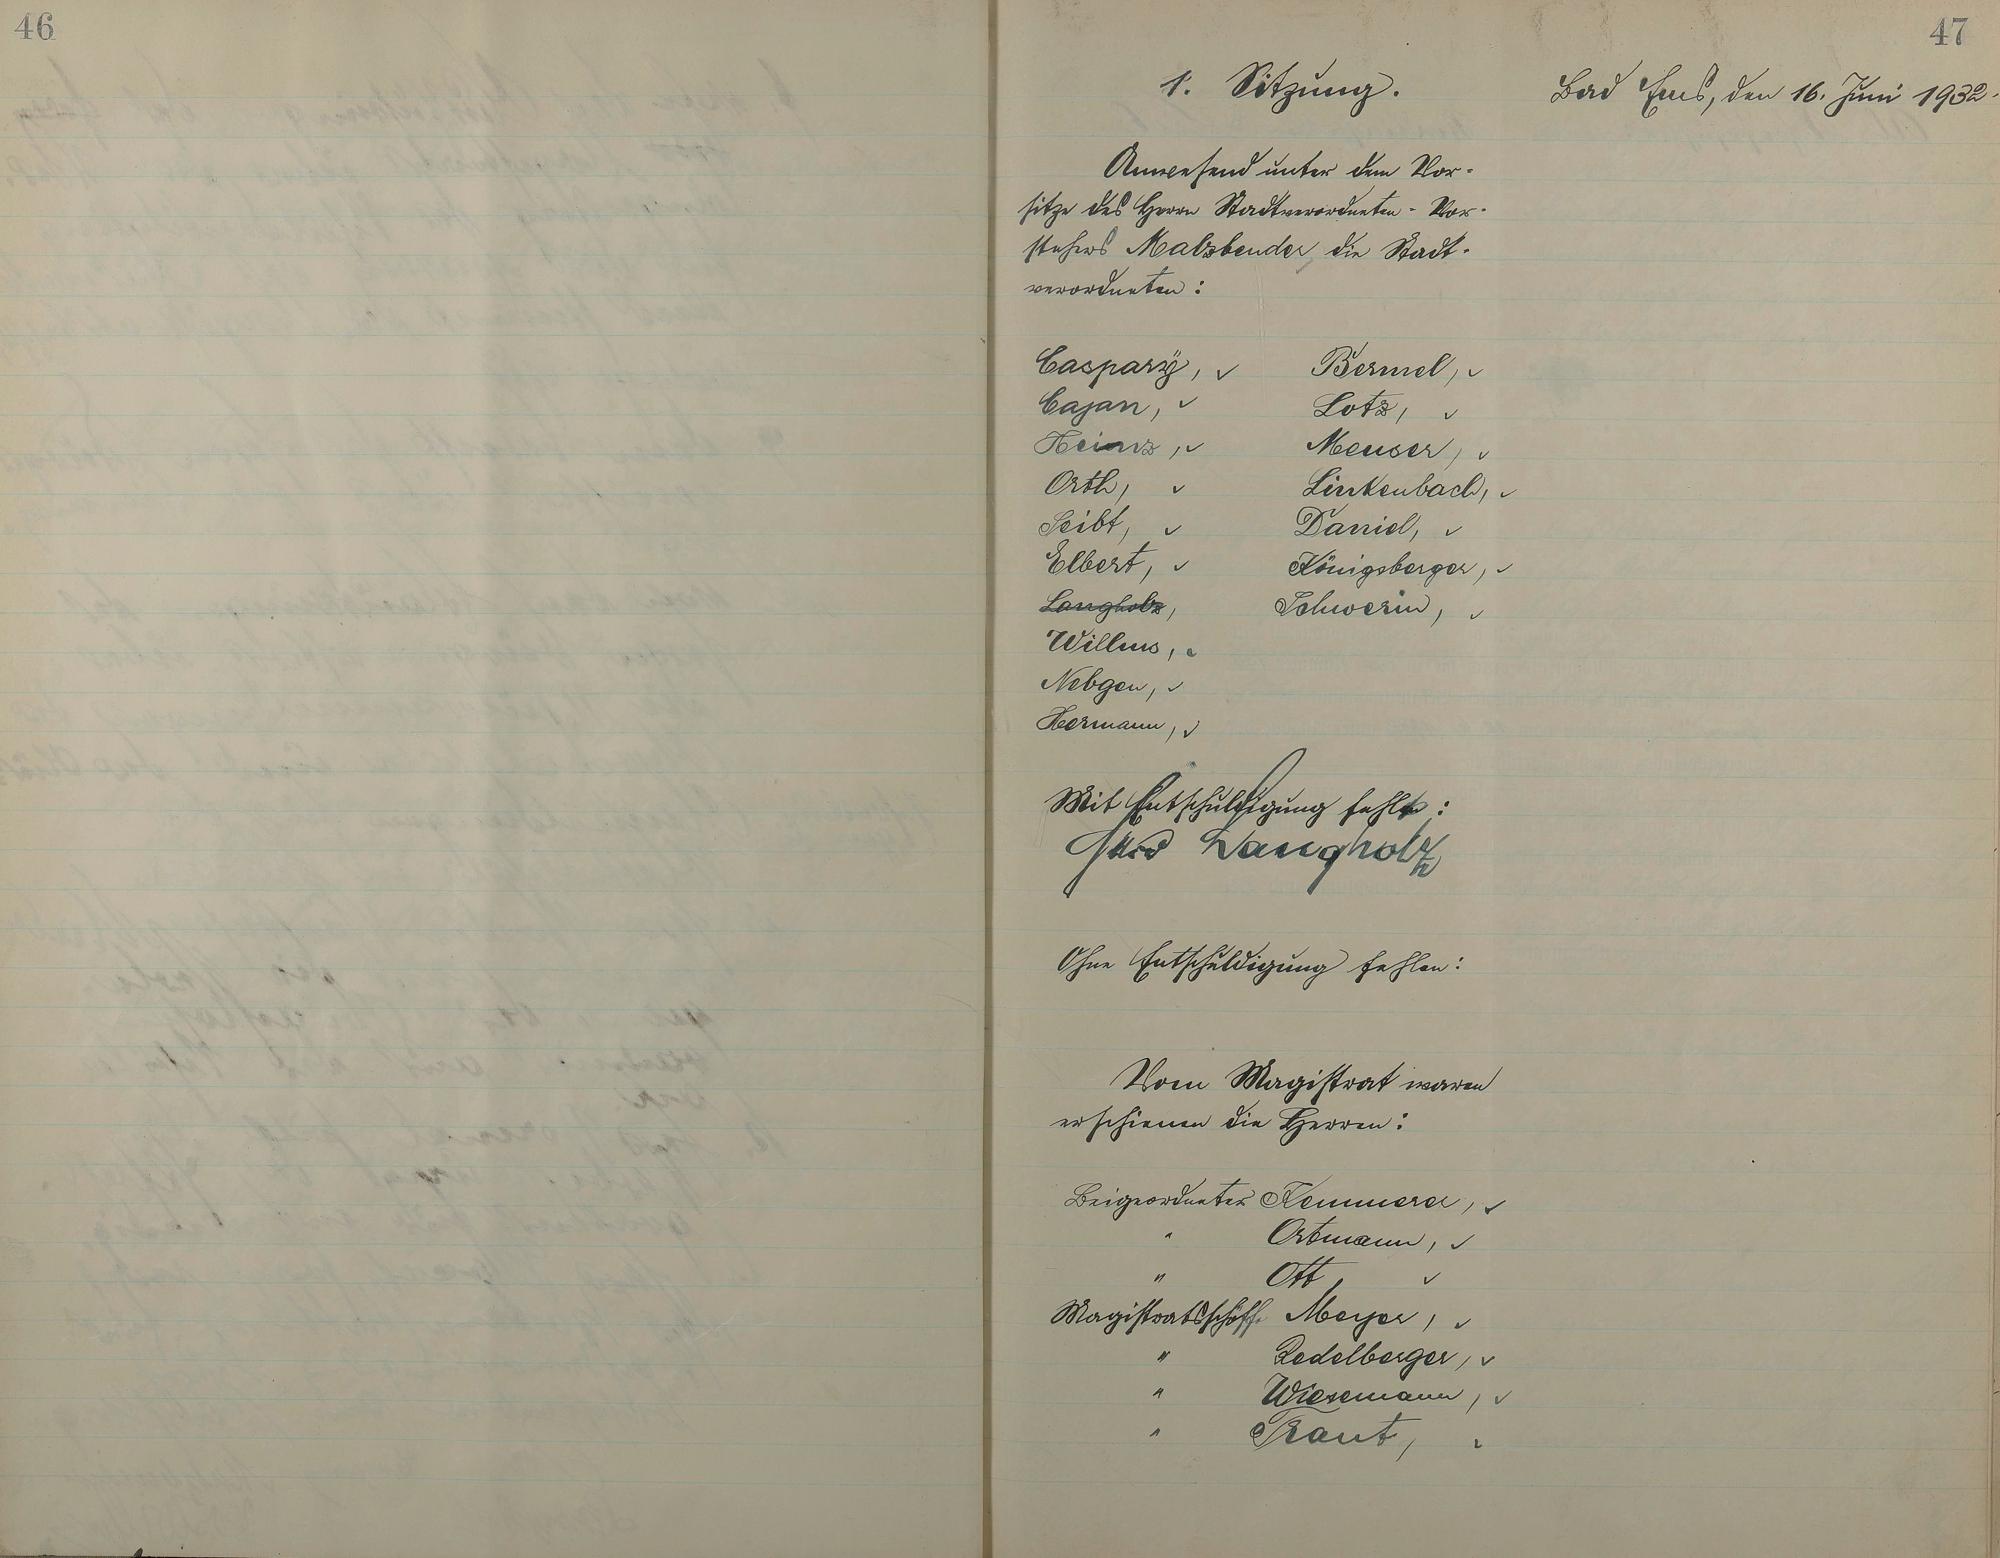 46
47
1. Sitzung. Bad Ems, den 16. Juni 1932.
Anwesend unter dem Vor-
sitze des Herrn Stadtverordneten-Vor-
stehers Malzbender die Stadt-
verordneten:
Caspary, ✓ Bermel, ✓
Cajan, ✓ Lotz, ✓
Heinz, ✓ Meuser, ✓
Orth, ✓ Linkenbach, ✓
Seibt, ✓ Daniel, ✓
Elbert, ✓ Königsberger, ✓
Langholz, Schwerin, ✓
Willms, ✓
Nebgen, ✓
Hermann, ✓
Mit Entschuldigung fehlt:
Langholz
Ohne Entschuldigung fehlen:
Vom Magistrat waren
erschienen die Herren:
Beigeordneter Kemmerer, ✓
" Ortmann, ✓
" Ott, ✓
Magistratsschöffe Meyer, ✓
" Redelberger, ✓
" Wiesemann, ✓
" Traut, ✓